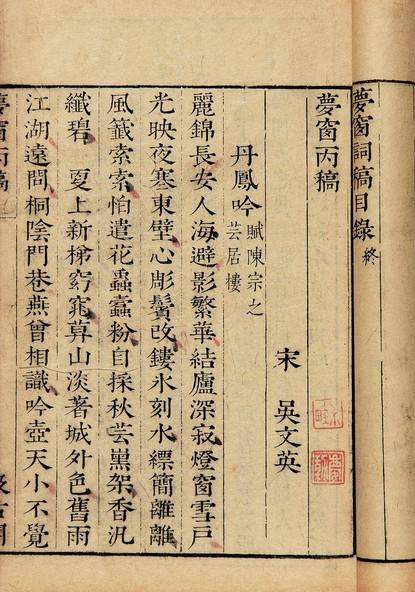 夢窗詞稿目錄終
夢窗丙稿
宋 吳文英
丹鳳吟 賦陳宗之
芸居樓
麗錦長安人海避影繁華結廬深寂燈窗雪戶
光映夜寒東壁心彫鬢改鏤氷刻水縹簡離離
風籤索索怕遣花蟲蠹粉自採秋芸熏架香汎
纖碧 更上新梯窈窕莫山淡著城外色舊雨
江湖遠問桐陰門巷燕曾相識吟壺天小不覺
夢窗丙稿
汲古閣